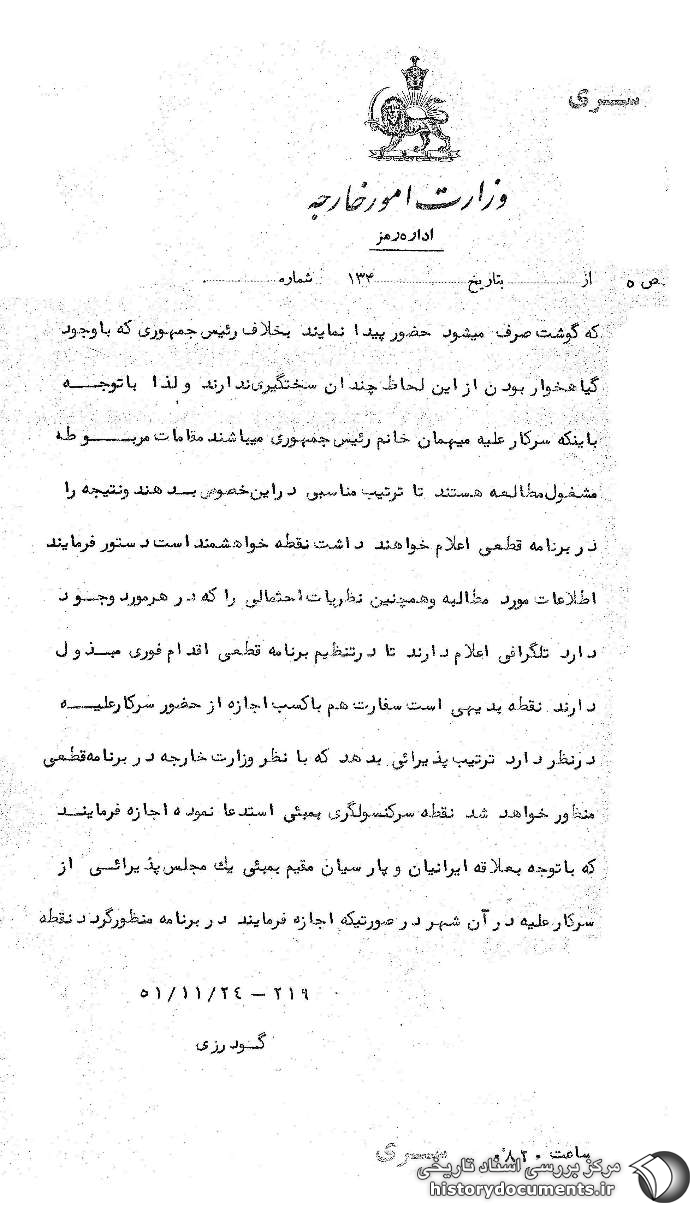 سری
وزارت امور خارجه
اداره رمز
ص ه از بتاریخ ۱۳۴ شماره
که گوشت صرف میشود حضور پیدا نمایند بخلاف رئیس جمهوری که باوجود
گیاهخوار بودن از این لحاظ چندان سختگیری ندارند ولذا باتوجه
باینکه سرکار علیه میهمان خانم رئیس جمهوری میباشند مقامات مربوطه
مشغول مطالعه هستند تا ترتیب مناسبی دراین خصوص بدهند ونتیجه را
در برنامه قطعی اعلام خواهند داشت نقطه خواهشمند است دستور فرمایند
اطلاعات مورد مطالبه وهمچنین نظریات احتمالی را که در هرمورد وجود
دارد تلگرافی اعلام دارند تا درتنظیم برنامه قطعی اقدام فوری مبذول
دارند نقطه بدیهی است سفارت هم باکسب اجازه از حضور سرکارعلیه
درنظر دارد ترتیب پذیرائی بدهد که با نظر وزارت خارجه در برنامه قطعی
منظور خواهد شد نقطه سرکنسولگری بمبئی استدعا نموده اجازه فرمایند
که باتوجه بعلاقه ایرانیان و پارسیان مقیم بمبئی یك مجلس پذیرائی از
سرکارعلیه درآن شهر در صورتیکه اجازه فرمایند در برنامه منظورگردد نقطه
۲۱۹ – ۵۱/۱۱/۲٤
گودرزی
ساعت ۰۸۲۰
سری
مرکز بررسی اسناد تاریخی
historydocuments.ir